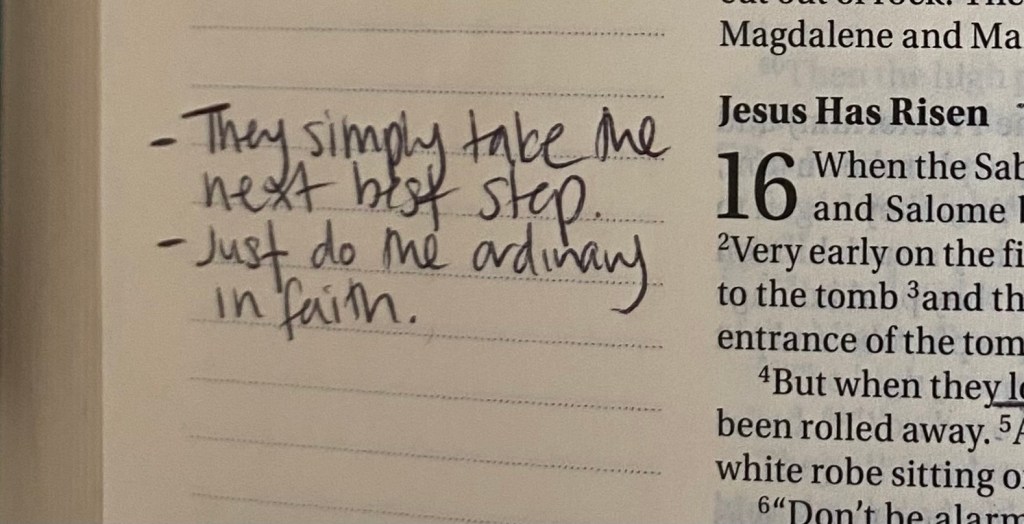 - They simply take the
next best step.
- Just do the ordinary
in faith.
Magdalene and Ma
Jesus Has Risen
16 When the Sab
and Salome
2Very early on the fi
to the tomb 3and th
entrance of the tom
4But when they lo
been rolled away. 5A
white robe sitting o
6"Don't be alarm